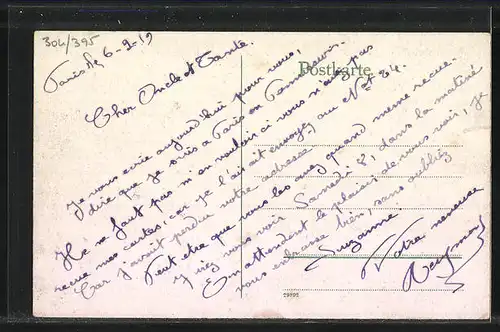 304/395
Postkarte.
Paris le 6-2-19
Cher Oncle et Tante.
Je vous écrie aujourd'hui pour vous,
dire que je suis a Paris en
Il ne faut pas m'en vouloir ci vous n'avez pas
reçue mes cartes car je l'ais ait envoyez au No 34.
Car j'avait perdue votre adresse,
Peut etre que vous les avez quand meme reçue.
J'irez vous voir Samedi 8, dans la matiné
En attendent le plaisir de vous voir, je
vous embrasse bien, sans oublié
Suzanne.
Votre neveux
Raymond
29292